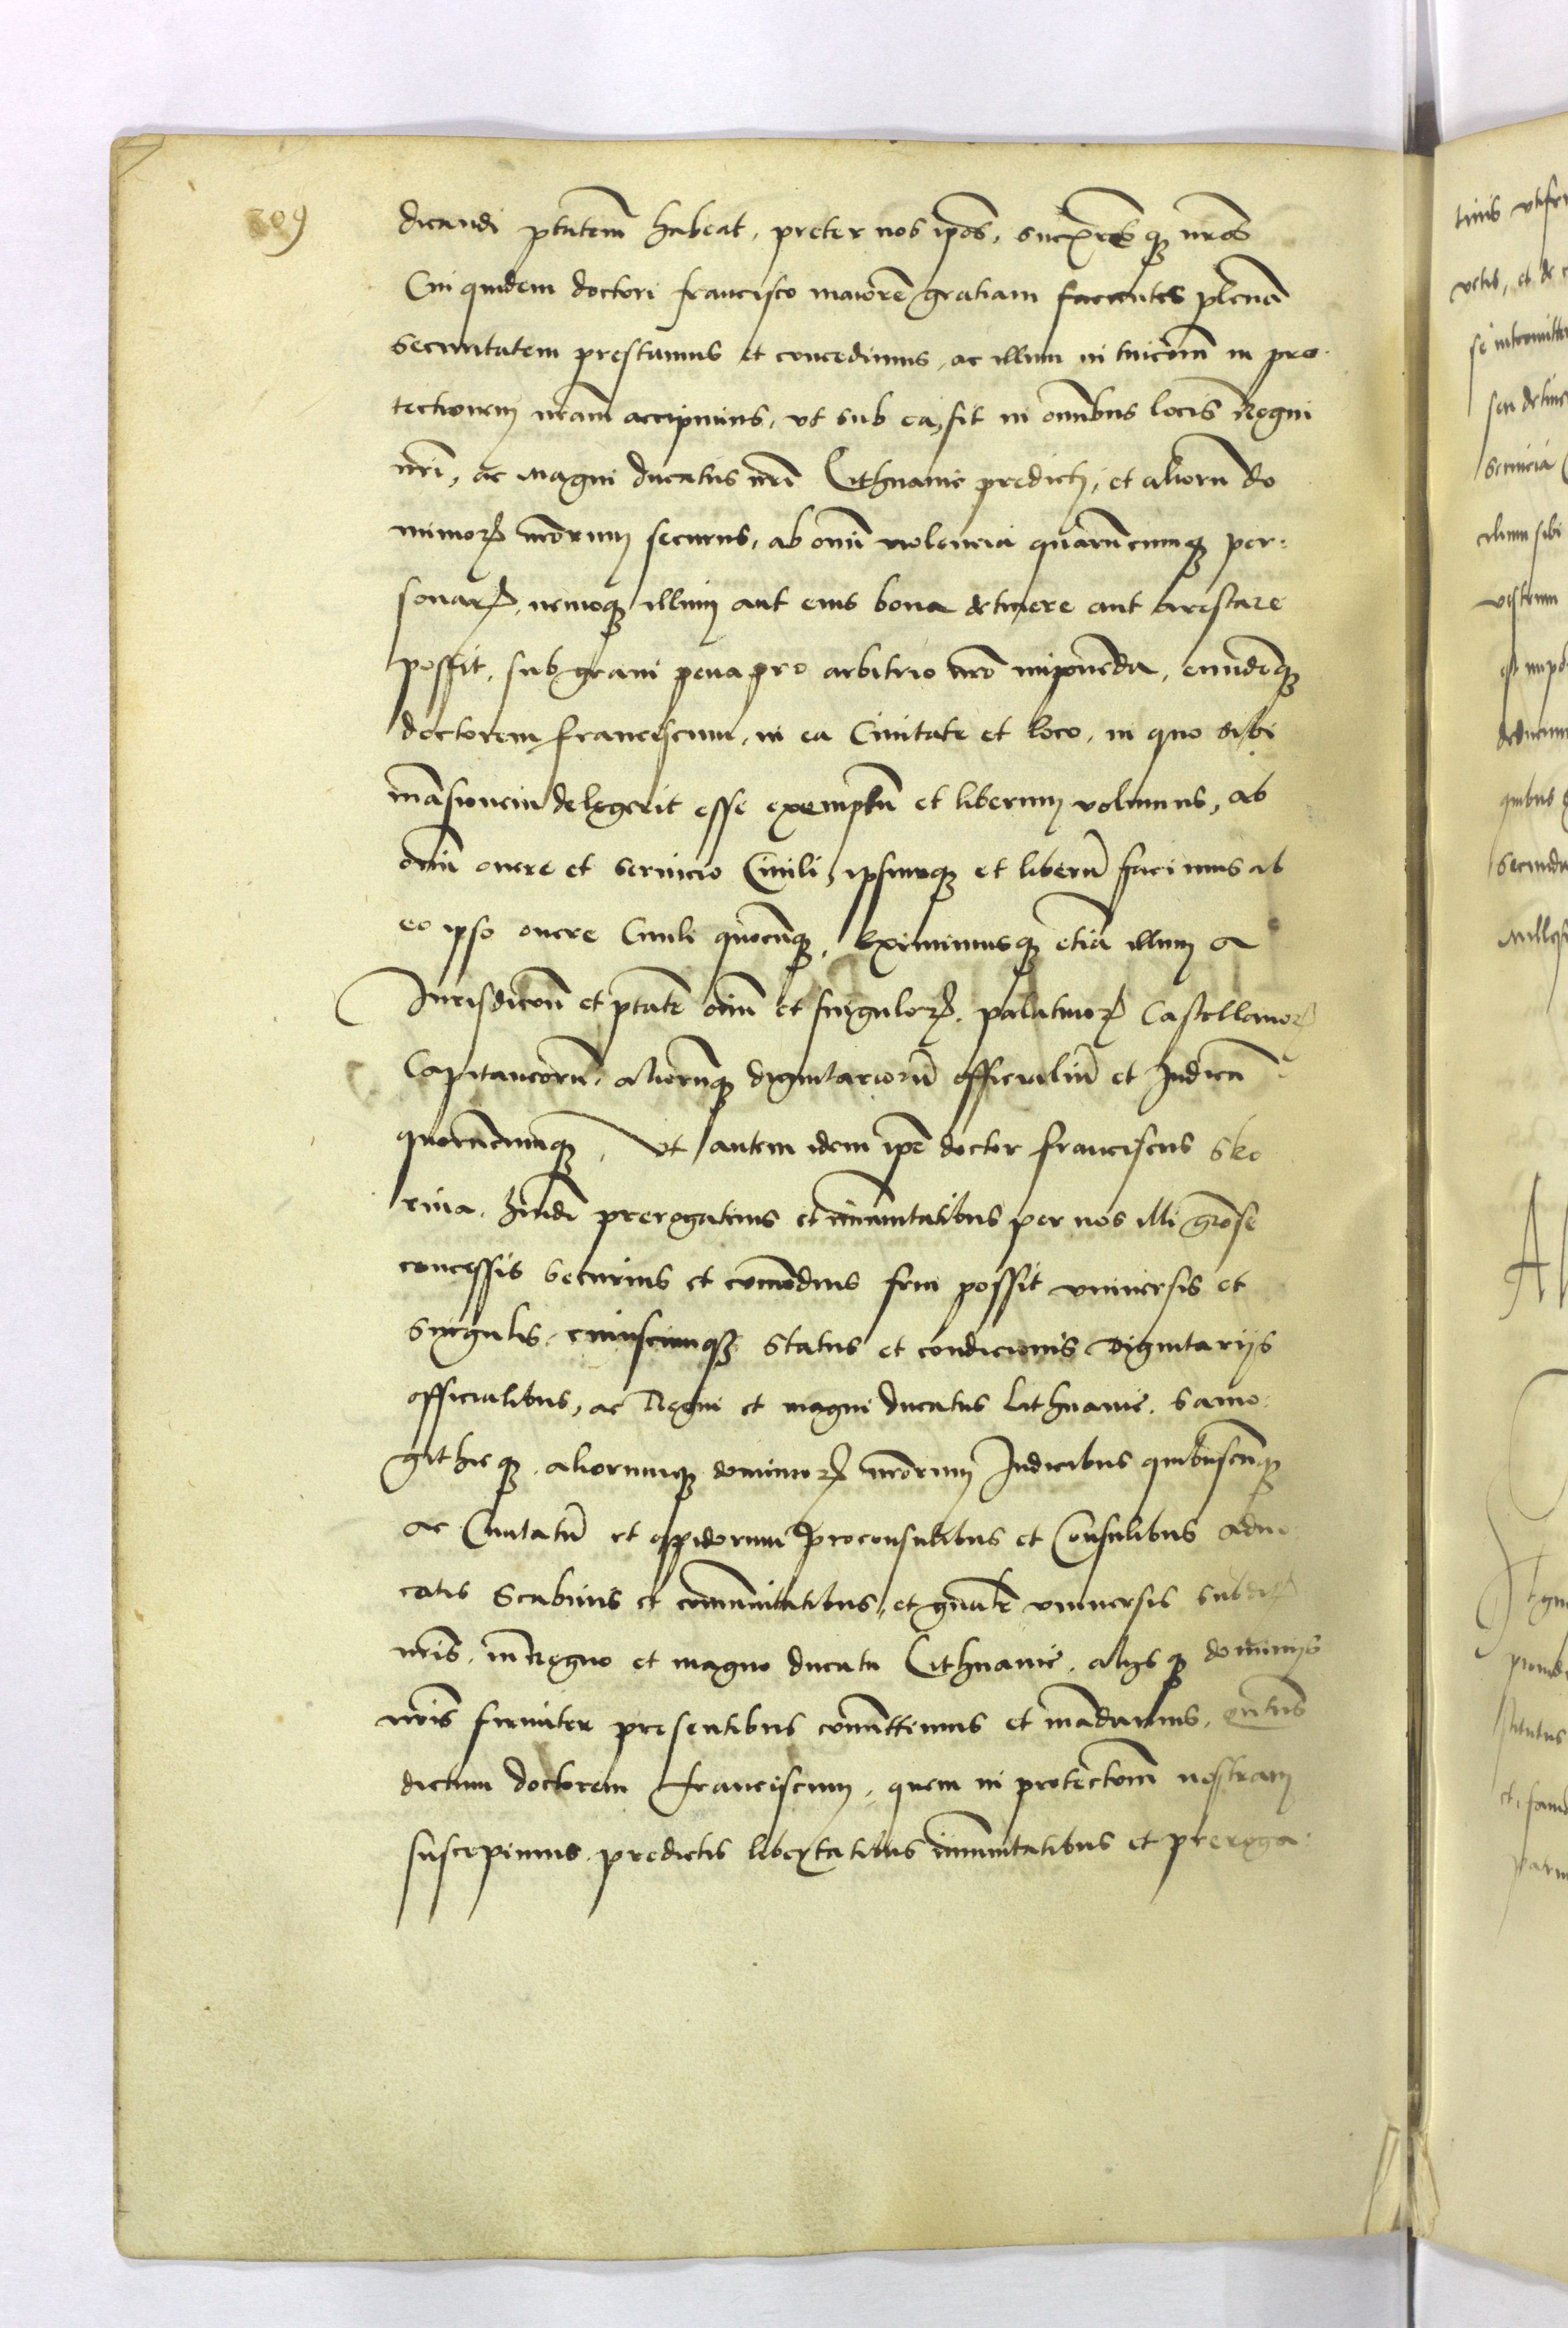 209
dicandi ptatem habeat, preter nos ipos, succores q nros
Cui quidem doctori francisco maiorem gratiam facientes plena
securitatem prestamus et concedimus, ac illum in tuicom in pro
tectionem nram accipimus, vt sub ea sit in omnibus locis Regni
nri, ac magni ducatus nri Lithuanie predicti, et aliorum do
minior nrorum securus, ab omni violencia quarumcumq per:
sonar, nemoq illum aut eius bona detinere aut arestare
possit, sub gravi pena pro arbitrio nro imponenda, eundemq
doctorem franciscum, in ea Civitate et loco, in quo sibi
mansionem delegerit esse exemptum et liberum volumus, ab
omni onere et servicio Civili, ipsumq et liberum facimus ab
eo ipso onere Civili quocunq, Eximimusq etiam illum a
Iurisdicom et ptate oim et singulor, palatinor Castellanor
Capitaneorum, aliorumq dignitariorum officialium et Iudicum
quorumcumq, Vt autem idem ipe doctor franciscus Sko
rina, hmodi prerogativis et immunitatibus per nos illi grose
concessis securius et comodius frui possit vniversis et
singulis, cuiuscumq status et condicionis dignitariis
officialibus, ac Regni et magni ducatus Lithuanie, Samo
githie q, aliorumq dominior nrorum Iudicibus quibuscumq
ac Civitatum et oppidorum proconsulibus et Consulibus advo
catis Scabinis et comunitatibus, et gnalr vniversis subdit
nris, in Regno et magno ducatu Lithuanie, aliisq dominiis
nris firmiter presentibus comittimus et mandamus,
dictum doctorem franciscum, quem in protectiom nostram
suscepimus, predictis libertatibus immunitatibus et preroga: